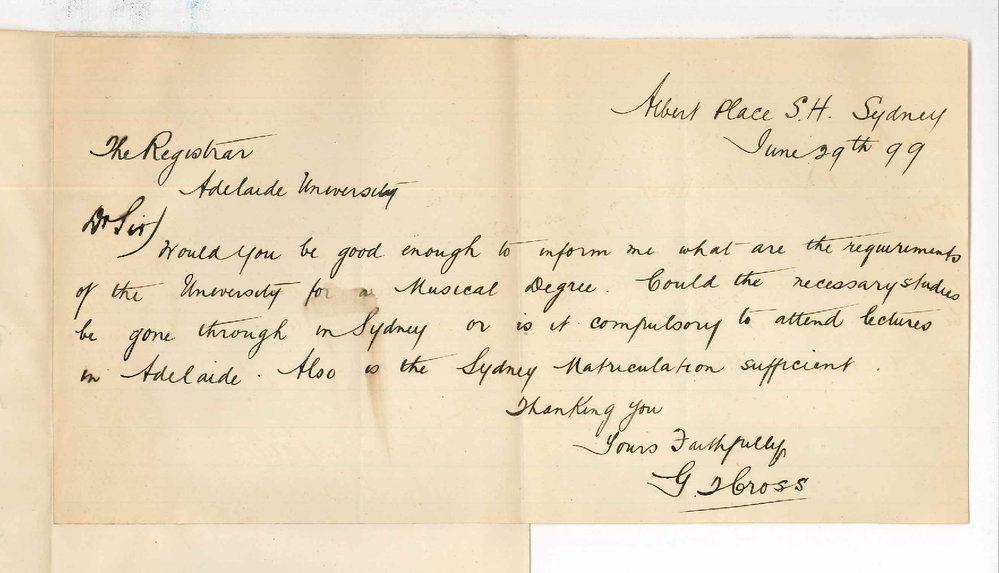 Albert Place S.H. Sydney
June 29th 99
The Registrar
Adelaide University
Dr Sir)
Would you be good enough to inform me what are the requirements
of the University for a Musical Degree. Could the necessary studies
be gone through in Sydney or is it compulsory to attend lectures
in Adelaide. Also is the Sydney Matriculation sufficient.
Thanking you
Yours Faithfully
G Cross